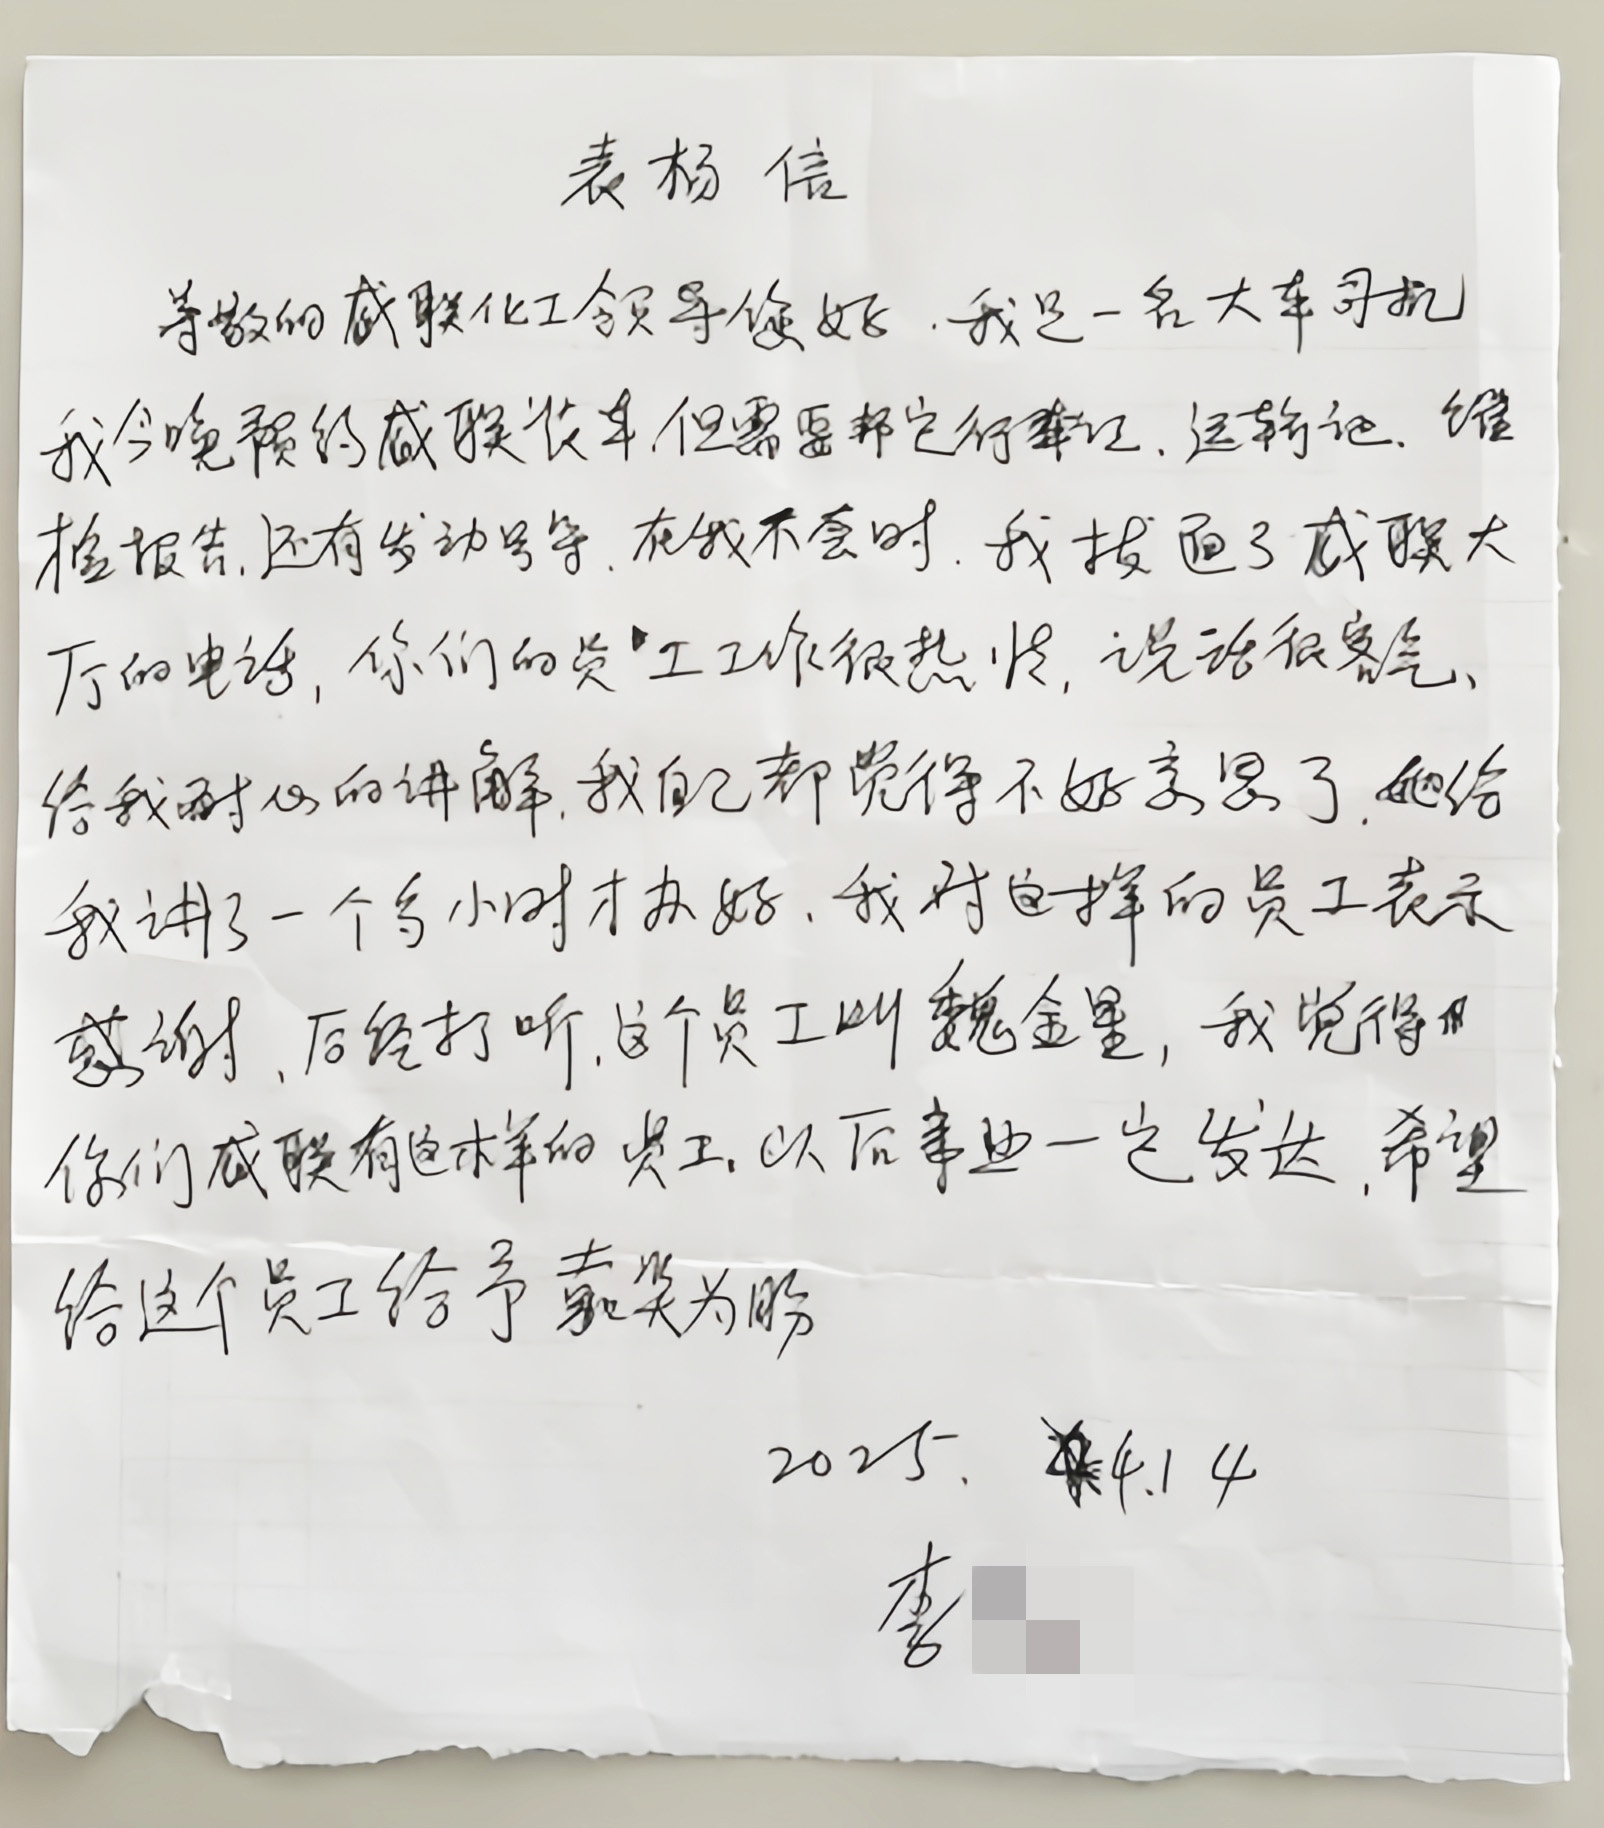 表杨信
尊敬的威联化工领导您好.我是一名大车司机
我今晚预约威联装车.但需要绑定行车证、运输证、维
检报告.还有发动号等.在我不会时.我拔通了威联大
厅的电话,你们的员工工作很热情,说话很客气、
给我耐心的讲解.我自己都觉得不好意思了.她给
我讲了一个多小时才办好.我对这样的员工表示
感谢,后经打听.这个员工叫魏金星,我觉得
你们威联有这样的员工.以后事业一定发达,希望
给这个员工给予嘉奖为盼
2025. 4.14
李